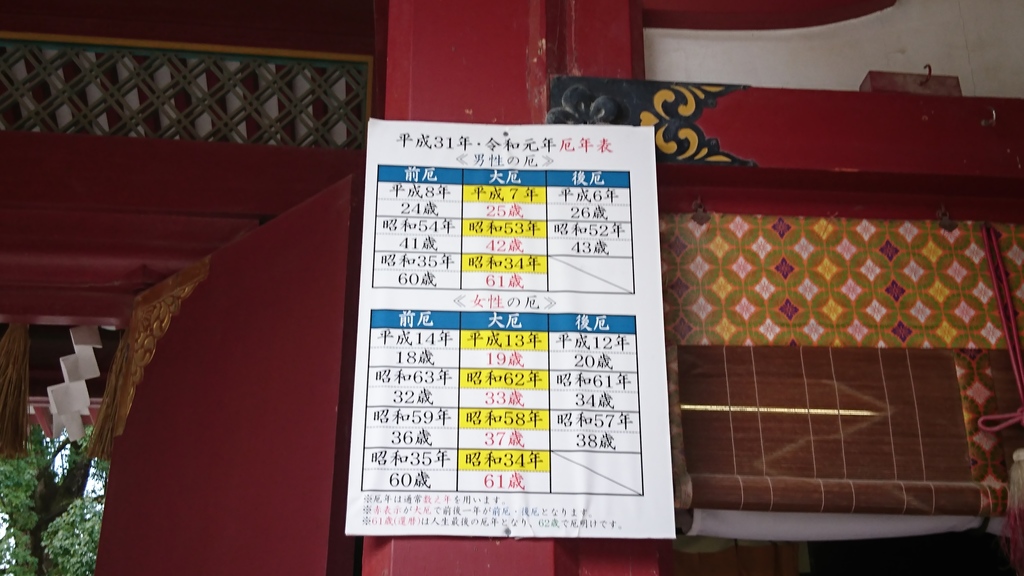 平成31年・令和元年厄年表
≪男性の厄≫
前厄 大厄 後厄
平成8年 平成7年 平成6年
24歳 25歳 26歳
昭和54年 昭和53年 昭和52年
41歳 42歳 43歳
昭和35年 昭和34年
60歳 61歳
≪女性の厄≫
前厄 大厄 後厄
平成14年 平成13年 平成12年
18歳 19歳 20歳
昭和63年 昭和62年 昭和61年
32歳 33歳 34歳
昭和59年 昭和58年 昭和57年
36歳 37歳 38歳
昭和35年 昭和34年
60歳 61歳
※厄年は通常数え年を用います。
※赤表示が大厄で前後一年が前厄・後厄となります。
※61歳(還暦)は人生最後の厄年となり、62歳で厄明けです。